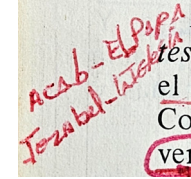 Acab - El Papa
Jezabel - La Iglesia
tes
el
Co
ver